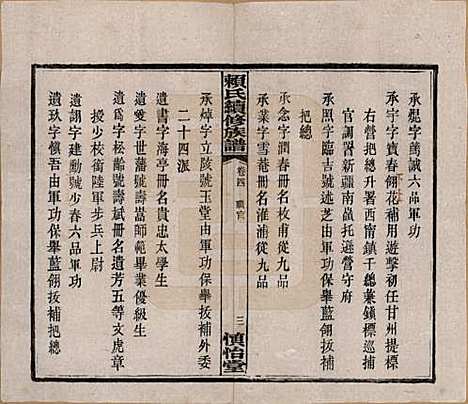 承髡字萬誠六品軍功
承宇字寳春翎花補用遊擊初任甘州提標
右營把總升署西南鎮千總兼鎮標巡捕
官調署新疆南蠱托遜營守府
承照字臨吉號述芝由軍功保舉拔補
把總
承念字潤春冊名枚甫從九品
承業字雪菴冊名淮浦從九品
賴氏續修族譜
卷四
職官
三
慎怡堂
承焯字立陵號玉堂由軍功保舉拔補外委
二十四派
遺書字海亭冊名貴忠太學生
遺愛字世藩號嵩師範畢業優級生
遺為字松齡號壽斌冊名遺芳五等文虎章
授少校銜陸軍步兵上尉
遺訓字建勳號少春六品軍功
遺玖字慎吾由軍功保舉藍翎拔補把總